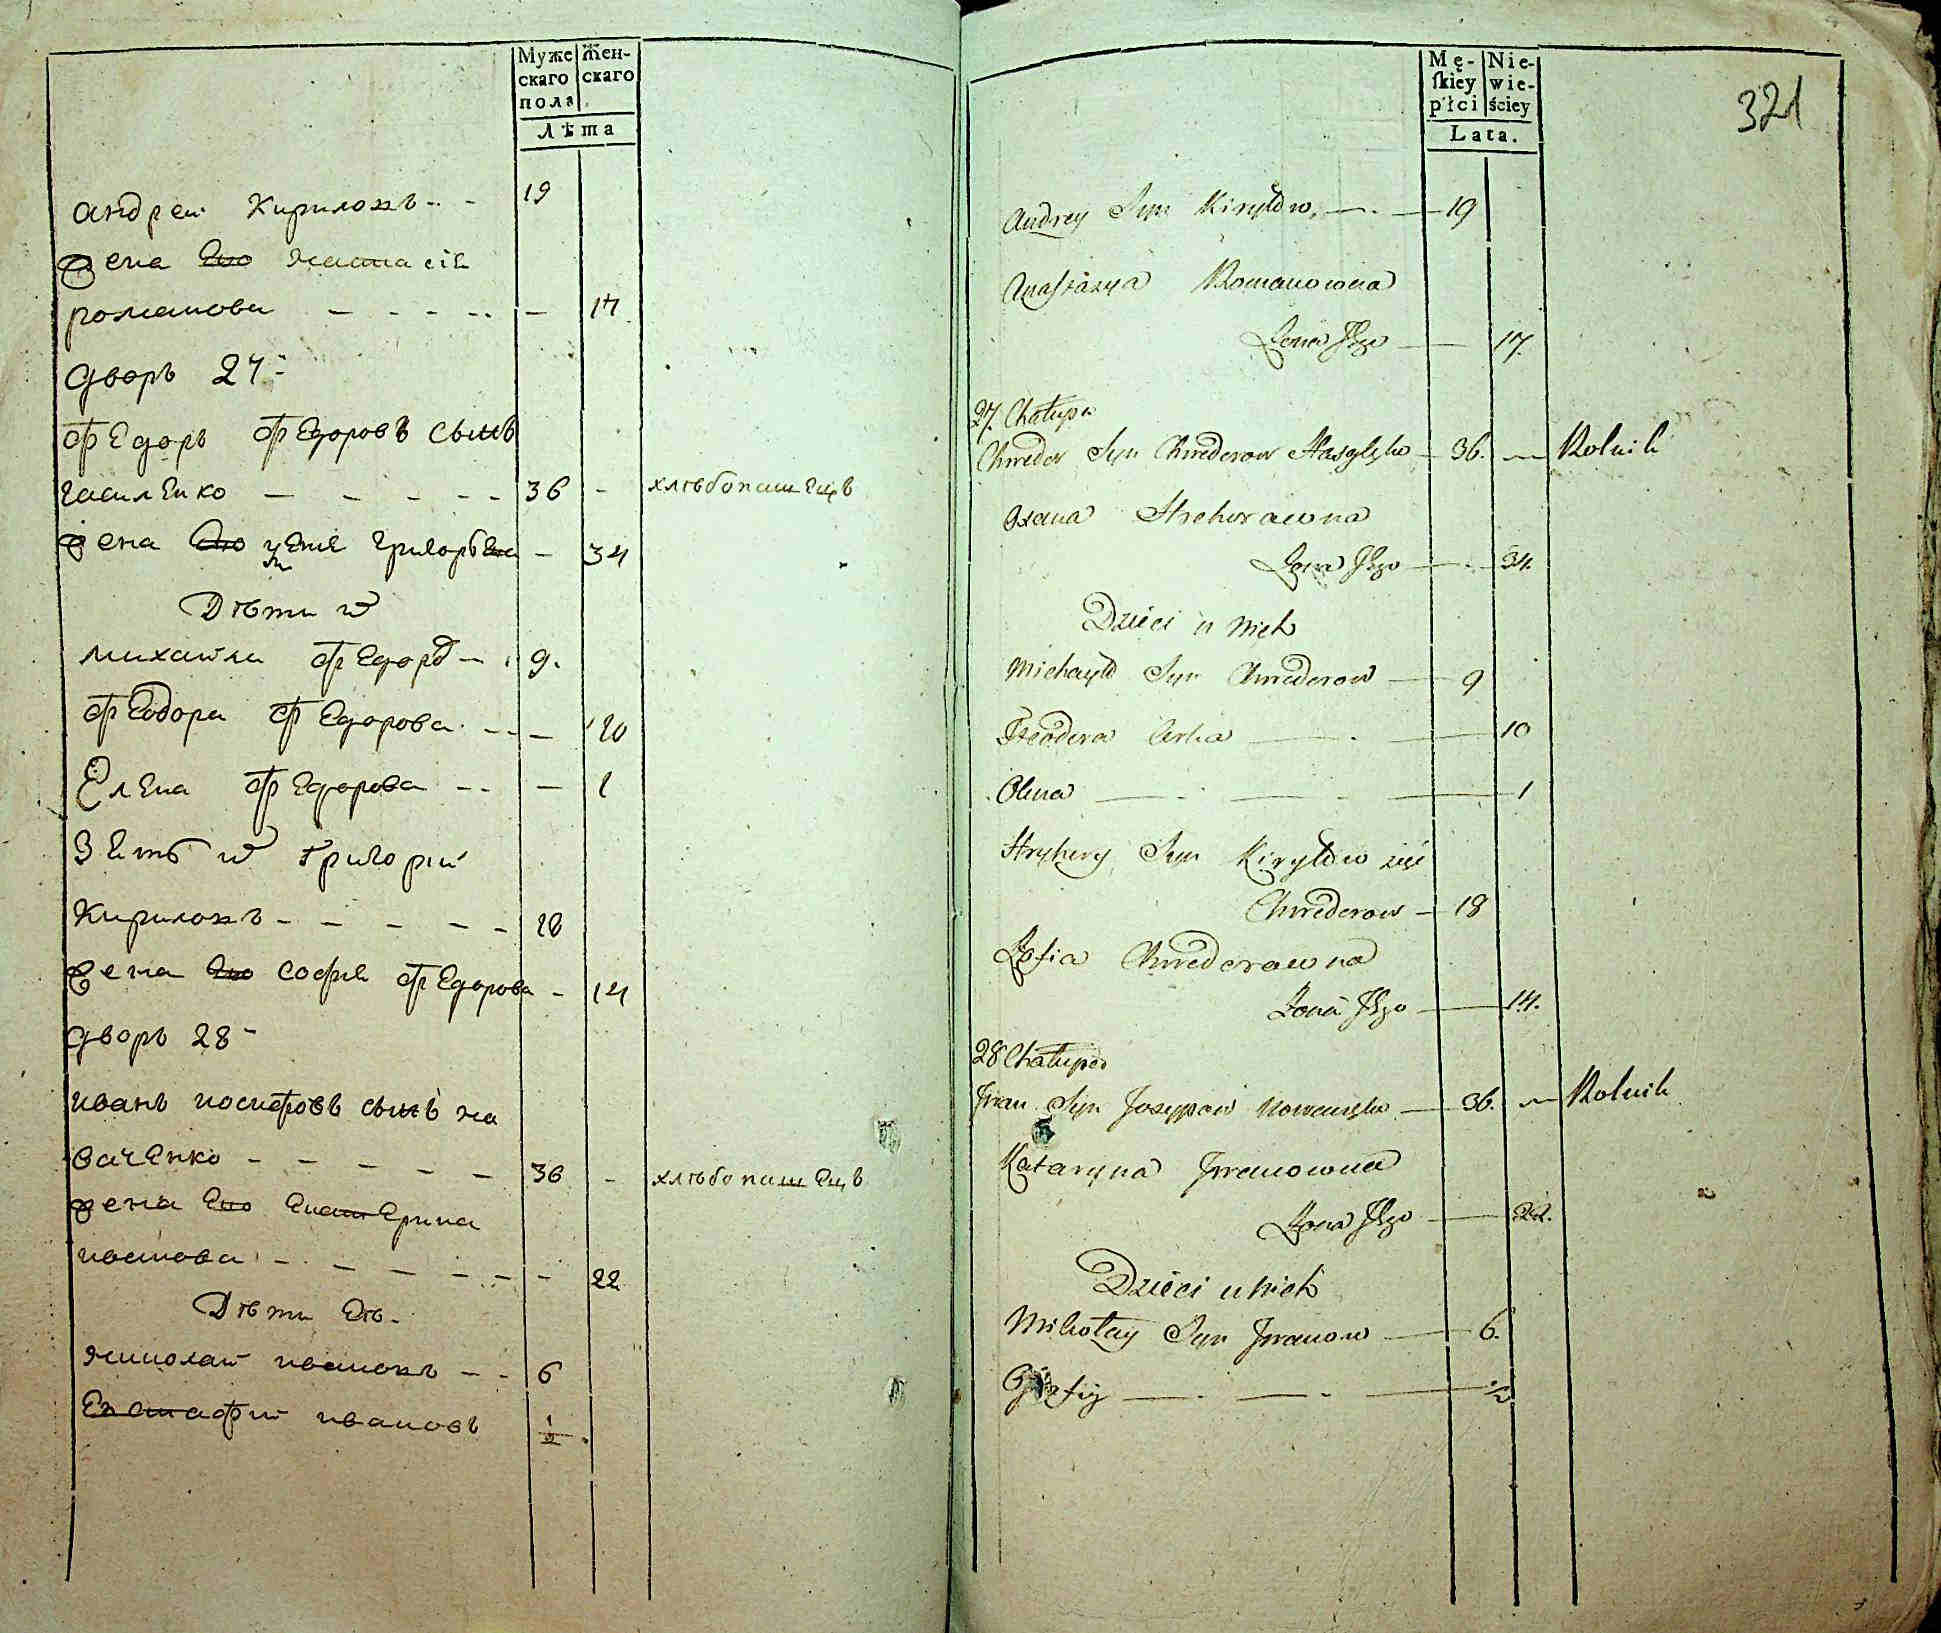 Муже
скаго
пола
Жен-
скаго
Лѣта
Андрей Кириловъ 19
Жена Его Настасія
романова - 17
дворъ 27
Федоръ Федоровъ сынъ
гасиленко 36 - хлѣбопашецъ
Жена Его григорьева - 34
Дѣти
михайла Федоровъ 9.
Феодора Федорова - 10
Елена Федорова - 1
Зять григорій
Кириловъ 18
Жена Его софия Федорова - 14
дворъ 28
иванъ иосифовъ сынъ но
ваченко 36 - хлѣбопашецъ
жена Его Екатерина
иванова - 22
Дѣти Ег.
николай ивановъ 6
Евстафий ивановъ 1/2
Mę-
ſkiey
płci
Nie-
wie-
ściey
Lata.
321
Andrey Syn Kiryłów, 19
Anastazya Romanowna
Żona Jego 17.
27. Chałupa
Chweder Syn Chwederow Hasylęko 36. Rolnik
Hrehorowna
Żona Jego 34.
Dzieci u Nich
Michayło Syn Chwederow 9
Teodora Corka 10
Olena 1
Hryhory Syn Kiryłów zięć
Chwederow 18
Zofia Chwederowna
Żona Jego 14.
28 Chałupa
Jwan Syn Jozypow 36. Rolnik
Kataryna Jwanowna
Żona Jego 22.
Dzieci u Nich
Mikołay Syn Jwanow 6.
1/2